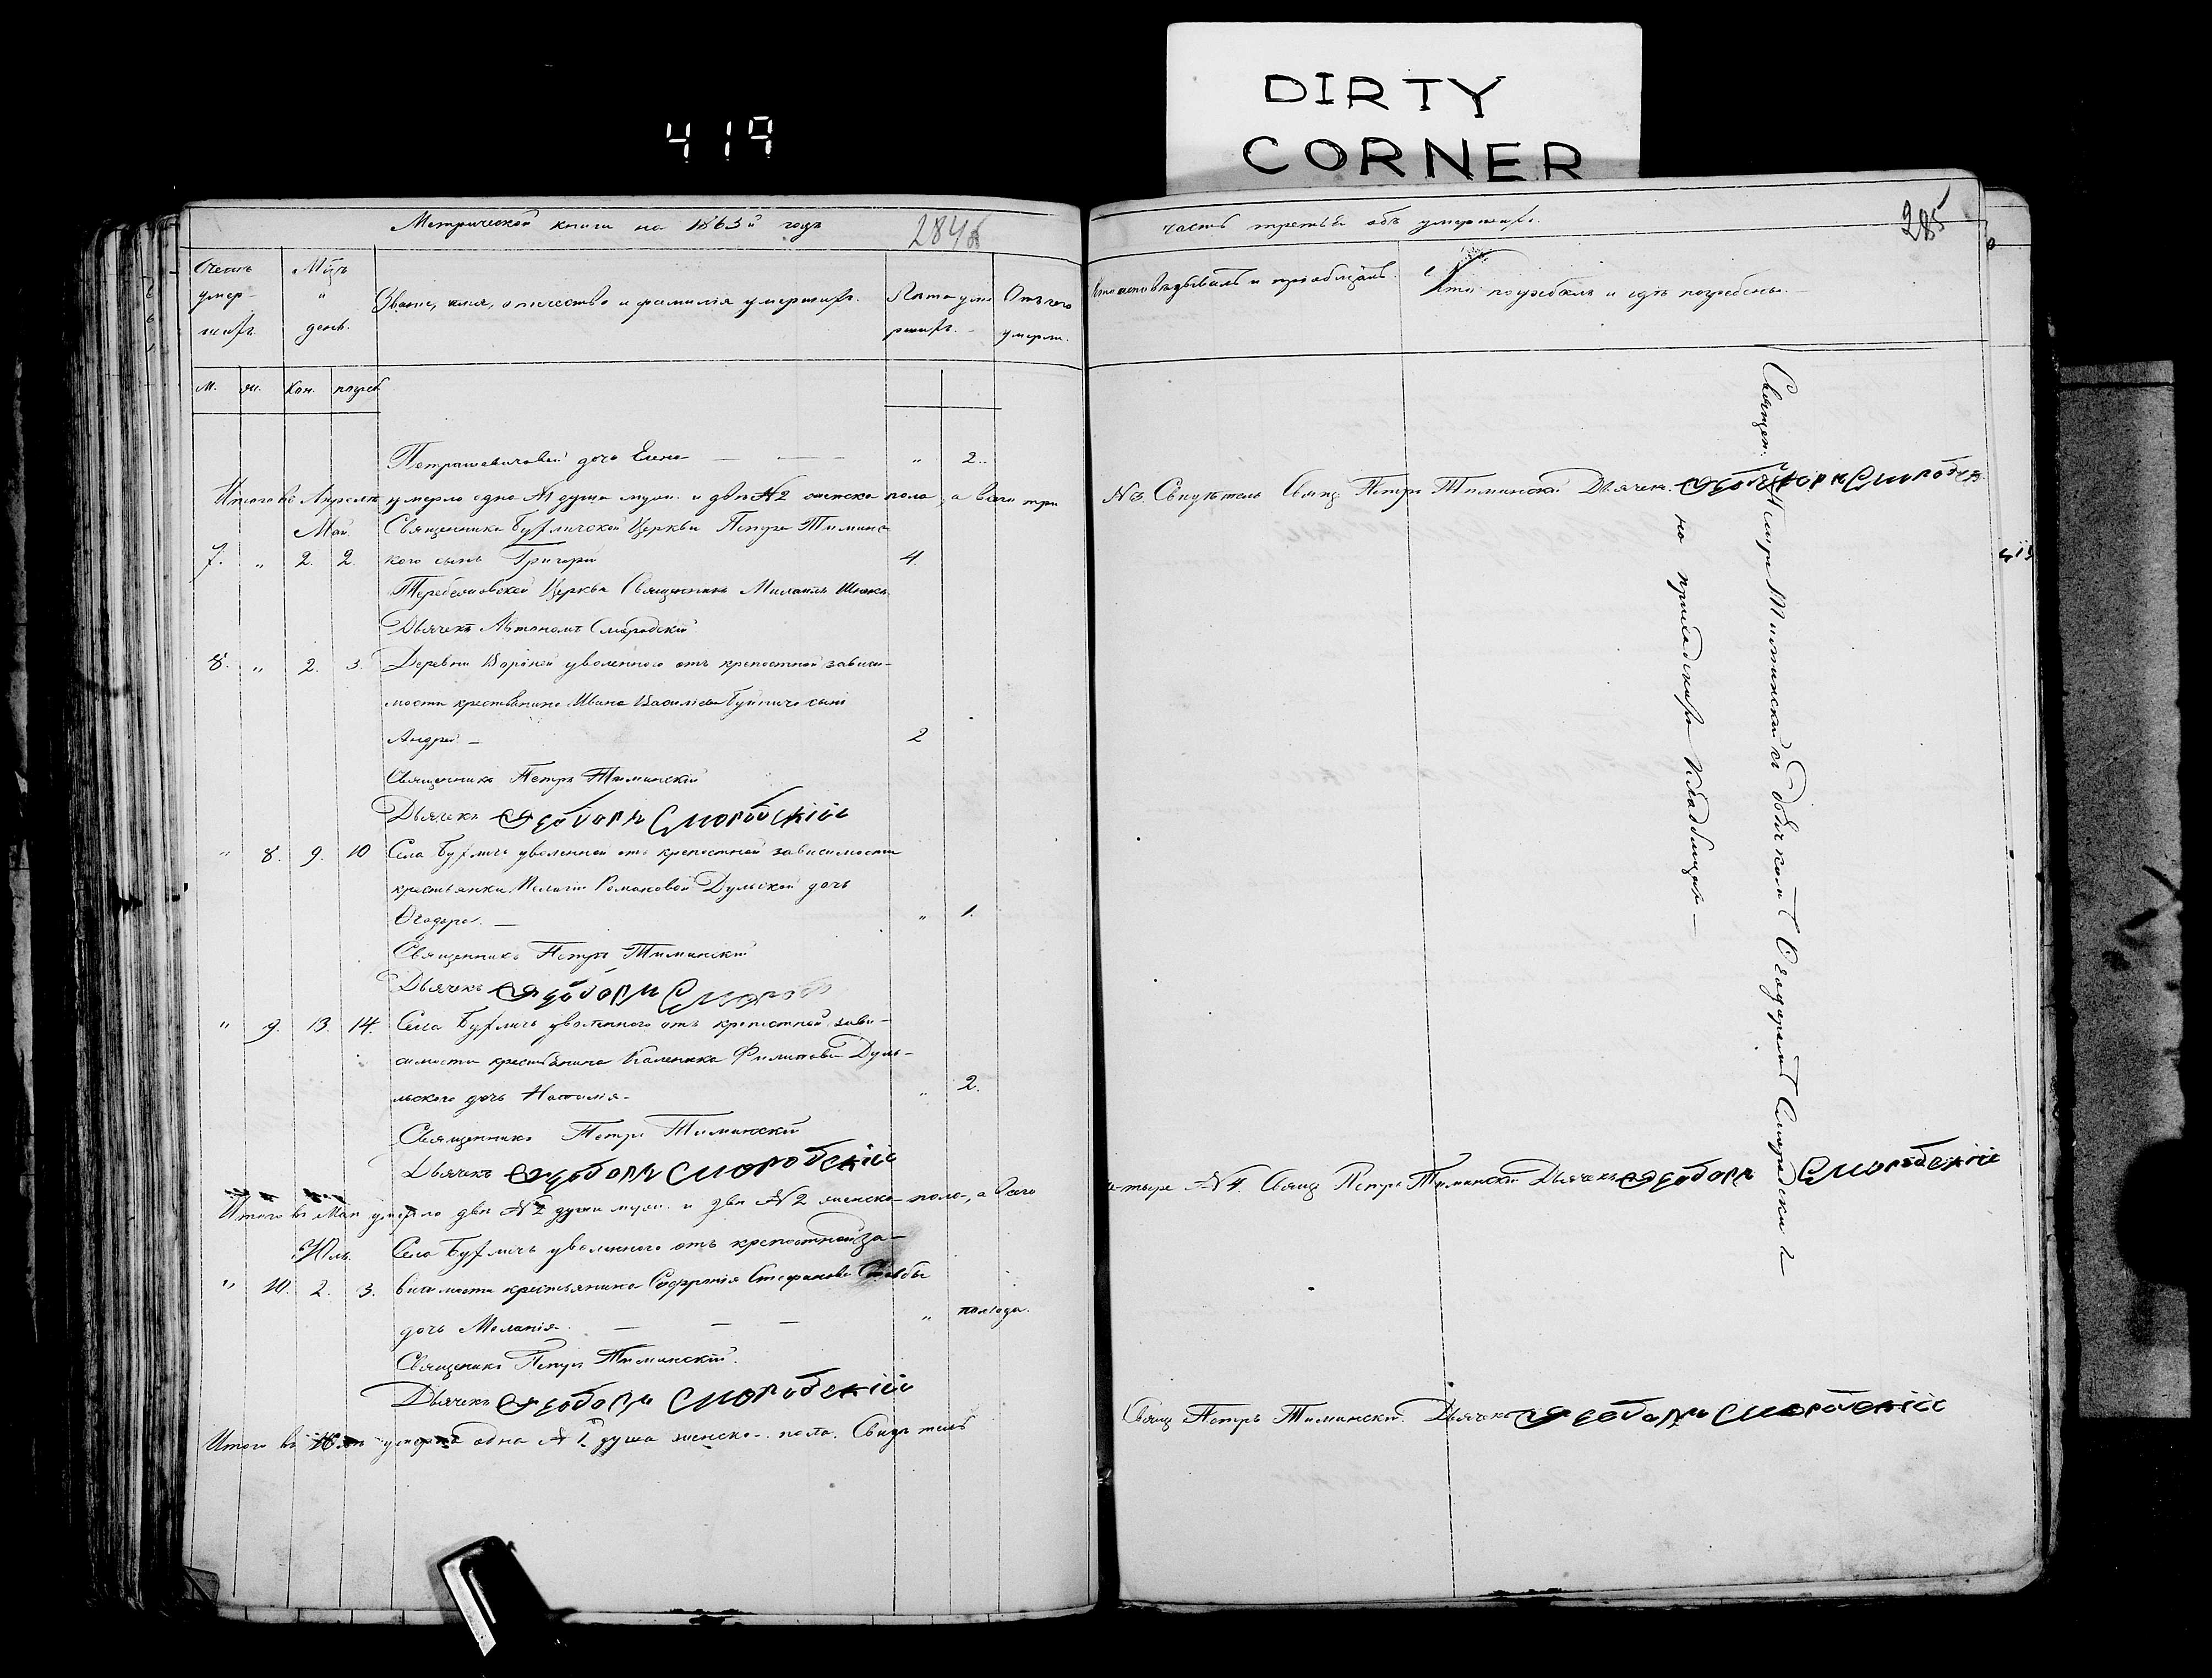 DIRTY
CORNER
419
Метрической книги на 1863й годъ
284
часть третья объ умершихъ.
285
Счетъ умер-шихъ.
Мѣсяцъ и день.
Званіе, имя, отечество и фамилія умершихъ.
Лѣта умершихъ.
Отъ чего умерли.
Кто исповѣдывалъ и пріобщалъ.
Кто погребалъ и гдѣ погребены.
м. ж. Кон. погреб
Петрашевичовой дочь Елена — „ 2.
Итого въ Апрелѣ умерло одна №1 душа муж. и двѣ №2 женска пола, а всего три
№3. Свидѣтель Свящ. Петръ Тиминскій Дьячекъ Ѳеодоръ Смородскій
Май. Священника Бухличской Церкви Петра Тиминс
7. „ 2. 2. кого сынъ Григорій 4.
Теребежовской Церкви Священникъ Михаилъ
Дьячекъ Автономъ Смородскій
8. „ 2. 3. Деревни Вороней уволенного отъ крепостной зависи-
мости крестьянина Ивана Василіева сынъ
Андрей — 2
Священникъ Петръ Тиминскій
Дьячекъ Ѳеодоръ Смородскій
„ 8. 9. 10 Села Бухличъ уволенной отъ крепостной зависимости
крестьянки Романовой Дульской дочь
Ѳеодора. — „ 1.
Священникъ Петръ Тиминскій
Дьячекъ Ѳеодоръ Смородс
„ 9. 13. 14. Села Бухличъ уволенного отъ крепостной зави-
симости крестьянина Каленика Филипова Дуль-
льского дочь Наталія — „ 2.
Священникъ Петръ Тиминскій
Дьячекъ Ѳеодоръ Смородскій
Итого въ Маѣ умерло двѣ №2 души муж. и двѣ №2 женска пола, а всего
четыре №4. Свящ Петръ Тиминскій Дьячекъ Ѳеодоръ Смородскій
Юль. Села Бухличъ уволенного отъ крепостной за-
„ 10. 2. 3. висимости крестьянина Стефанова
дочь Меланія. — — — „ полгода.
Священикъ Петръ Тиминскій.
Дьячекъ Ѳеодоръ Смородскій
Итого въ умерла одна №1 душа женска пола. Свидѣтель
Свящ Петръ Тиминскій. Дьячекъ Ѳеодоръ Смородскій
Священ. Петръ Тиминскій съ дьячкомъ Ѳеодоромъ Смородскимъ
на приходскихъ Кладбищахъ —